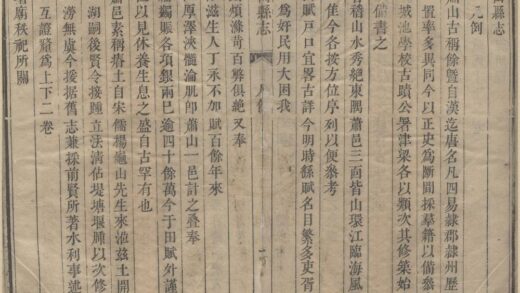 縣志
凡例
蕭山古稱餘暨自漢迄唐名凡四易隸郡隸州歷
置率多異同今以正史爲斷間採羣籍以備參
城池學校古蹟公署津梁各以類次其修築始
備書之
稽山水秀絕東隅蕭邑三面皆山環江臨海風
今各按方位序列以便參考
賦戶口宜畧古詳今明時縣賦名目繁多吏胥
爲奸民用大困我
縣志
凡例
煩滌苛百弊俱絕又奉
滋生人丁永不加賦百餘年來
厚澤浹髓淪肌卽蕭山一邑計之疊奉
蠲賑各項銀兩已逾四十餘萬今于田賦外謹
以見休養生息之盛自古罕有也
蕭邑素稱瘠土自宋儒楊龜山先生來涖茲土開
湖嗣後賢令接踵立法淸佔堤塘堰牐以次修
澇無虞今援據舊志兼採前賢所著水利事述
互證釐爲上下二卷
廟秩祀所關